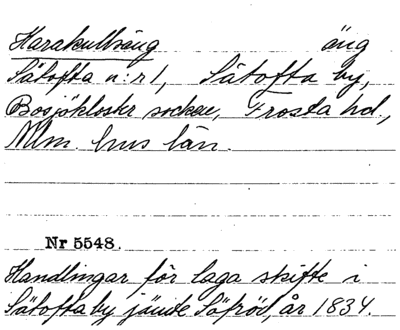 Harakullsäng äng
Sätofta n:r 1, Sätofta by,
Bosjökloster socken, Frosta hd.,
Mlm. hus län.
Nr 5548.
Handlingar för laga skifte i
Sätofta by jämte Söfröd, år 1834.